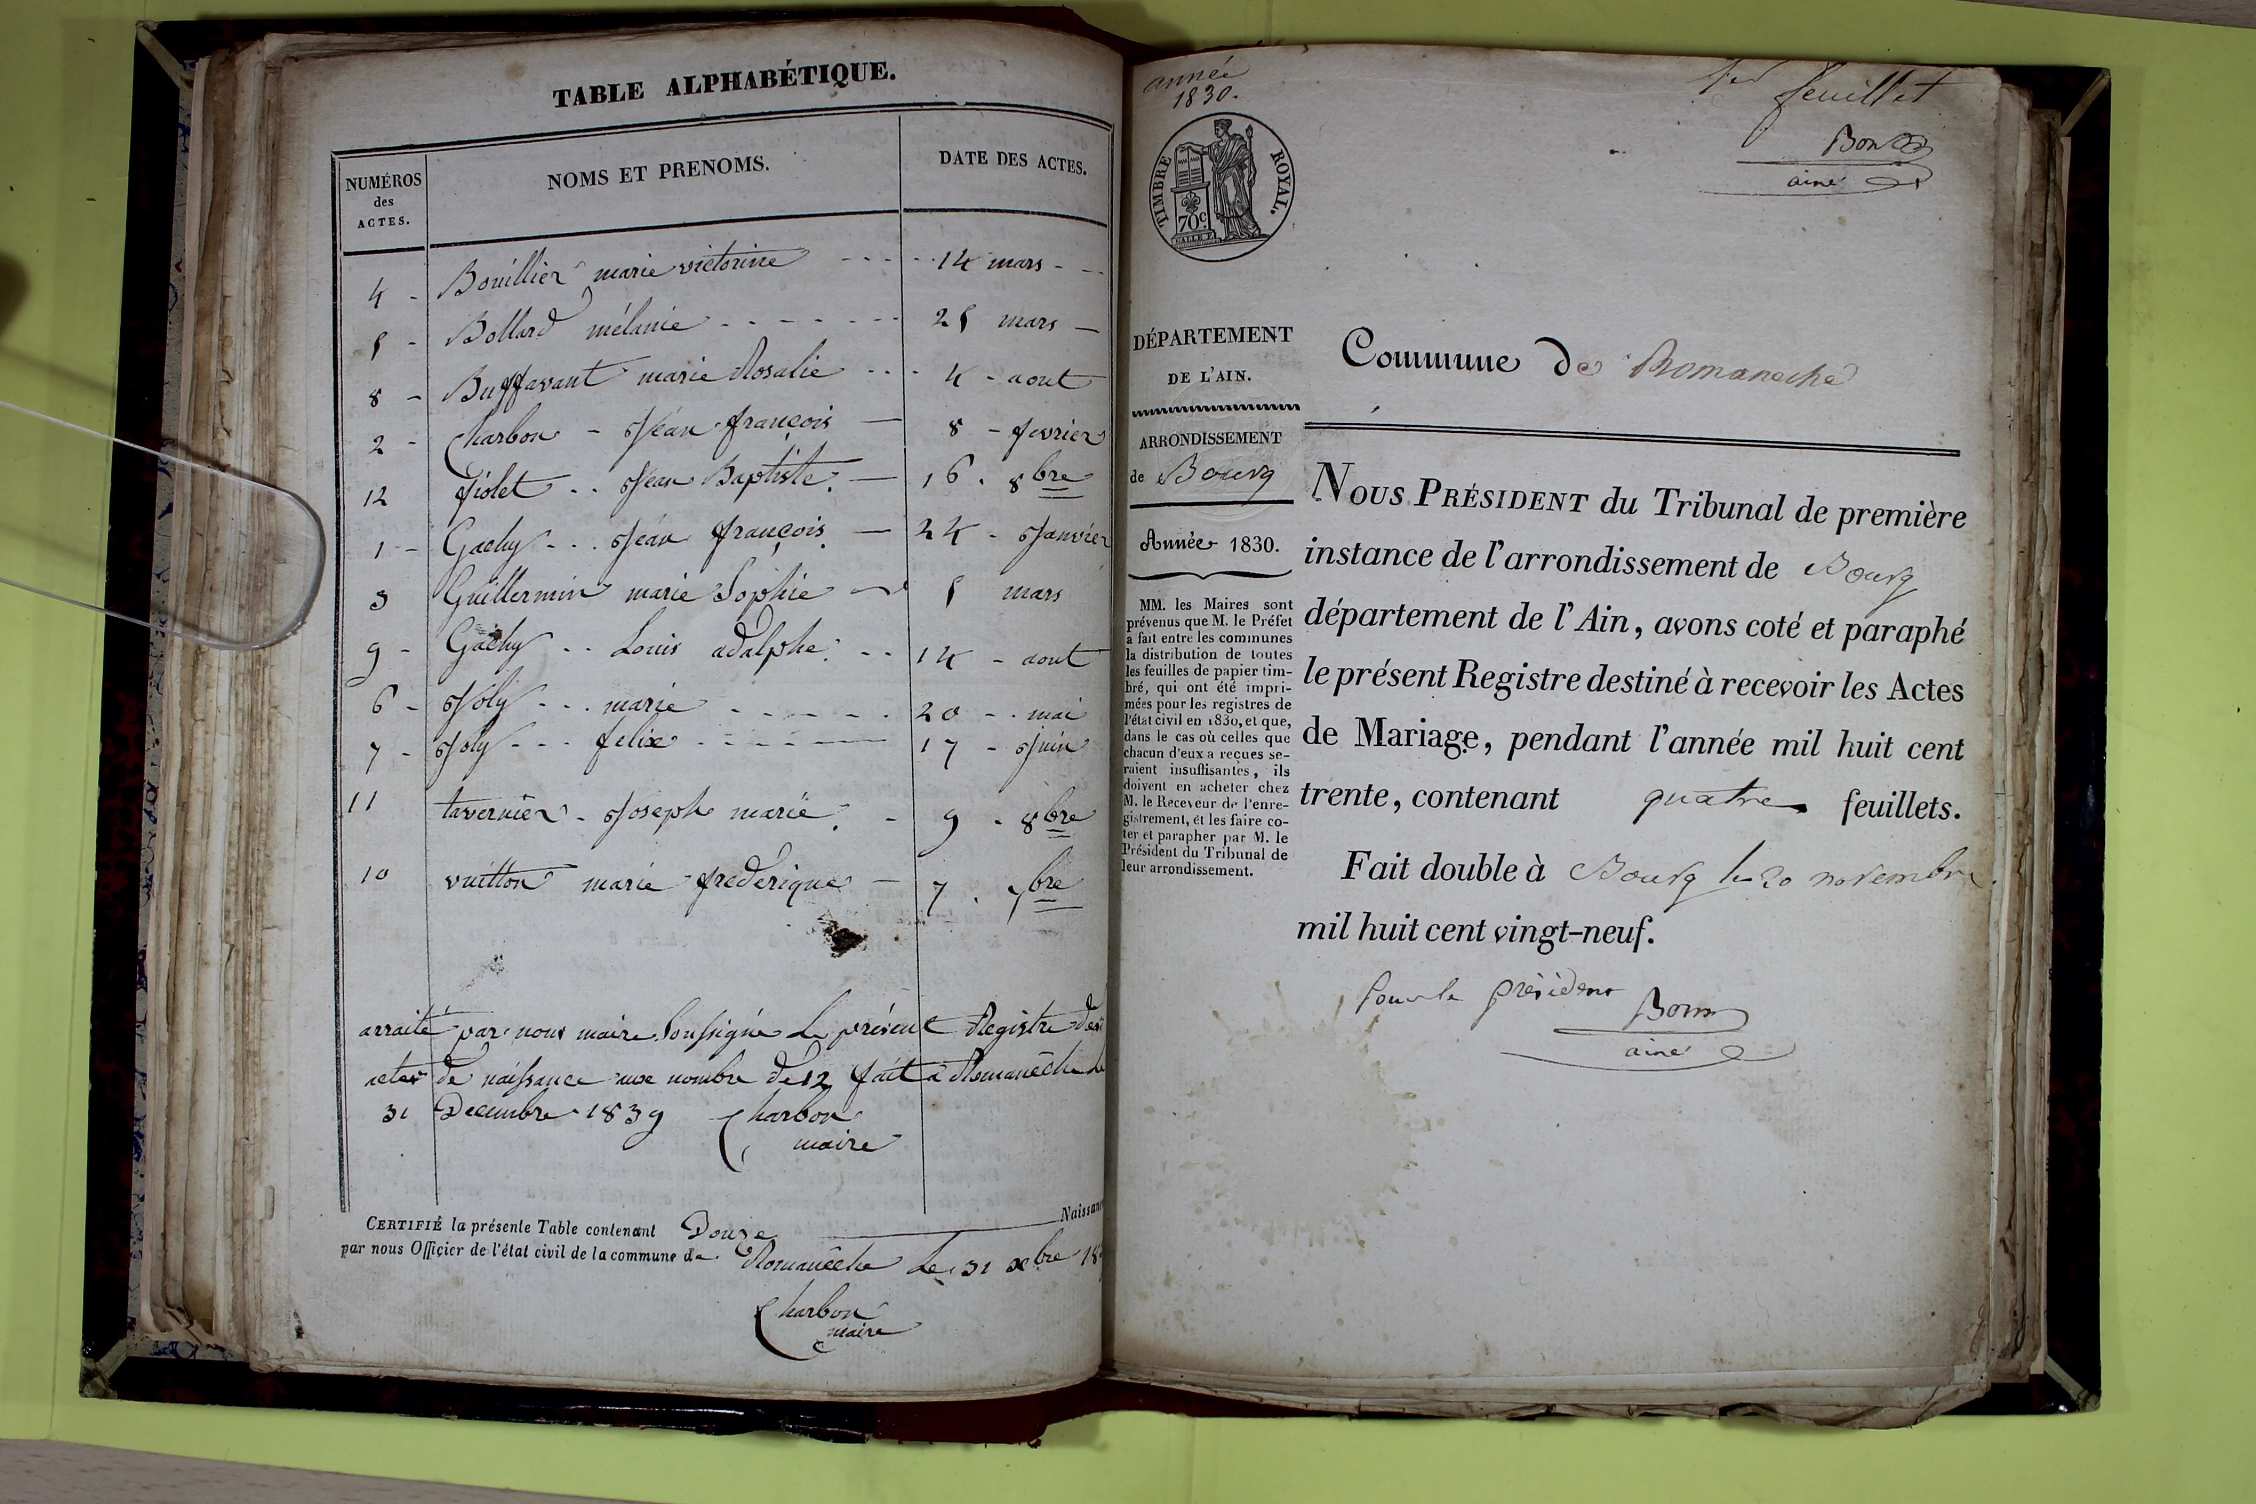 TABLE ALPHABÉTIQUE.
NUMÉROS
des
ACTES.
NOMS ET PRENOMS.
DATE DES ACTES.
4 - Bouillier marie victorine - - - - 14 mars - -
5 - Bollard mélanie - - - - - - - 25 mars -
8 - Buffavant marie Rosalie - - - 4 - aout
2 - Charbon - Jean françois - 8 - fevrier
12 fiolet - - Jean Baptiste. - 16 . 8bre
1 - Gachy - - . Jean françois. - 24 - Janvier
3 Guillermin marie Sophie - 5 mars
9 - Gachy - - Louis adolphe. - - 14 - aout
6 - Joly - - - marie - - - - - - 20 - - mai
7 - Joly - - - felix - - - - - 17 - Juin
11 tavernier - Joseph marie. - 9 - 8bre
10 vuitton marie frederique - 7 . 7bre
arraité par nous maire Soussigné Le présent Registre des
actes de naissance aux nombre de 12 fait à Romanêche Le
31 Decembre 1839 Charbon
maire
CERTIFIÉ la présente Table contenant Douze Naissan
par nous Officier de l'état civil de la commune de Romanêche Le 31 xbre 18
Charbon
maire
année
1830.
1er feuillet
Bon
ainé
TIMBRE ROYAL.
70c
DÉPARTEMENT
DE L'AIN.
ARRONDISSEMENT
de Bourg
Année 1830.
MM. les Maires sont
prévenus que M. le Préfet
a fait entre les communes
la distribution de toutes
les feuilles de papier tim-
bré, qui ont été impri-
mées pour les registres de
l'état civil en 1830, et que,
dans le cas où celles que
chacun d'eux a reçues se-
raient insuffisantes, ils
doivent en acheter chez
M. le Receveur de l'enre-
gistrement, et les faire co-
ter et parapher par M. le
Président du Tribunal de
leur arrondissement.
Commune de Romaneche
NOUS PRÉSIDENT du Tribunal de première
instance de l'arrondissement de Bourg
département de l'Ain, avons coté et paraphé
le présent Registre destiné à recevoir les Actes
de Mariage, pendant l'année mil huit cent
trente, contenant quatre feuillets.
Fait double à Bourg le 20 novembre
mil huit cent vingt-neuf.
Pour le président
Bon
ainé